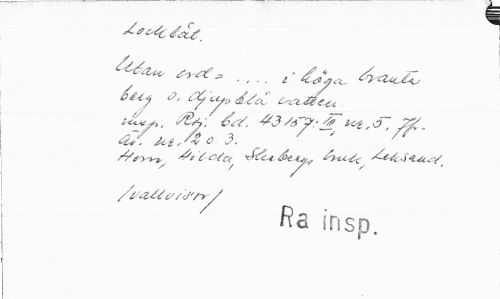 Locklåt.
Utan ord = .... i höga branta
berg o. djupblå vatten.
insp. Rtj. bd. 43157: III, nr. 5. Jfr.
är. nr. 203.
Horn, Hilda, Skebergs bruk, Leksand.
/vallvisor/
Ra insp.